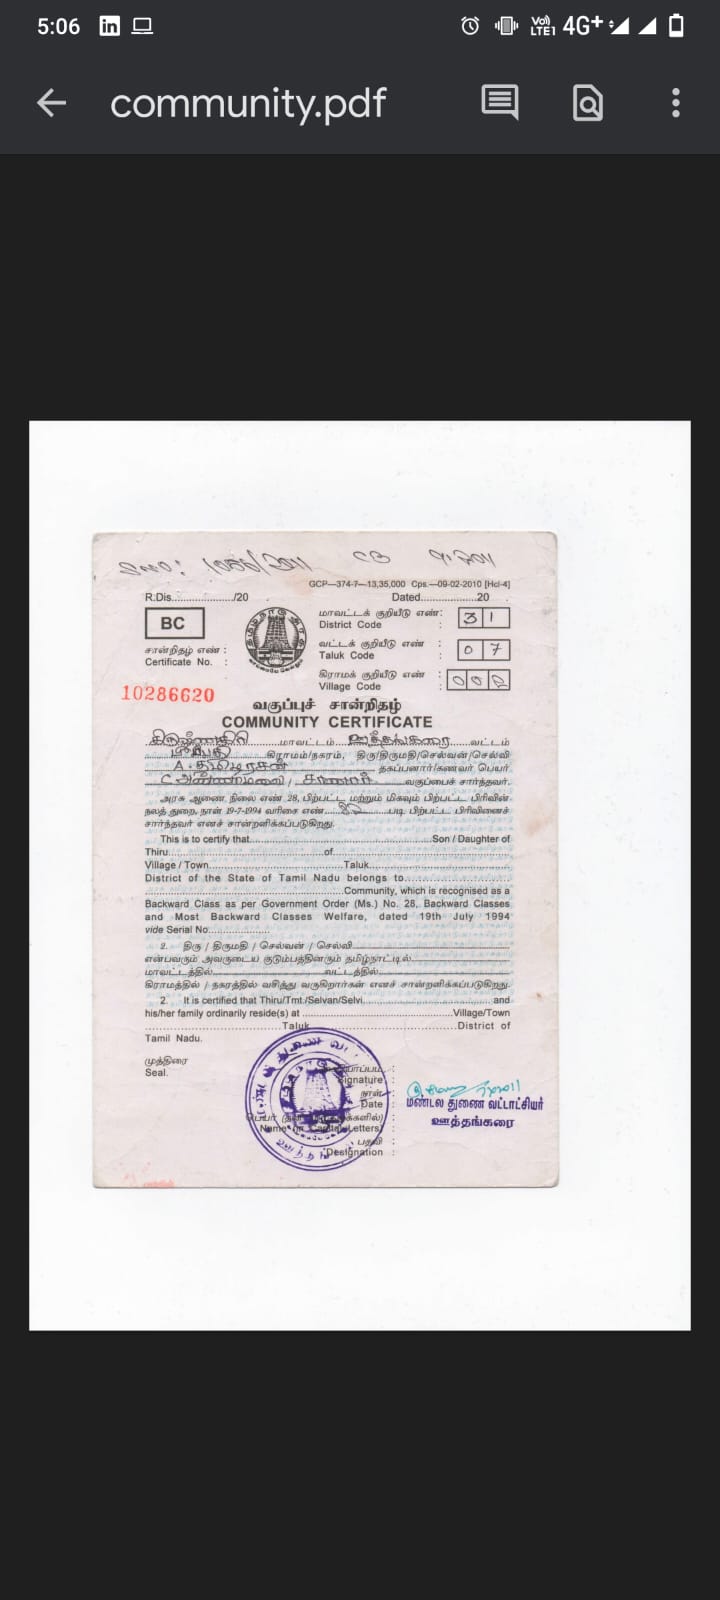 5:06
Vo) LTE1 4G+
community.pdf
GCP—374-7—13,35,000 Cps.—09-02-2010 [Hcl-4]
R.Dis..................../20 Dated....................20
BC
மாவட்டக் குறியீடு எண்:
District Code : 3 1
சான்றிதழ் எண் :
Certificate No. :
வட்டக் குறியீடு எண் :
Taluk Code : 0 7
கிராமக் குறியீடு எண் :
Village Code : 0 0
10286620
வகுப்புச் சான்றிதழ்
COMMUNITY CERTIFICATE
கிருஷ்ணகிரி மாவட்டம் ஊத்தங்கரை வட்டம்
கிராமம்/நகரம், திரு/திருமதி/செல்வன்/செல்வி
A. தகப்பனார்/கணவர் பெயர்
C அண்ணாமலை / சாணார் வகுப்பைச் சார்ந்தவர்.
அரசு ஆணை நிலை எண் 28, பிற்பட்ட மற்றும் மிகவும் பிற்பட்ட பிரிவின்
நலத் துறை, நாள் 19-7-1994 வரிசை எண் படி பிற்பட்ட பிரிவினைச்
சார்ந்தவர் எனச் சான்றளிக்கப்படுகிறது.
This is to certify that....................Son / Daughter of
Thiru....................of....................
Village / Town....................Taluk....................
District of the State of Tamil Nadu belongs to....................
....................Community, which is recognised as a
Backward Class as per Government Order (Ms.) No. 28, Backward Classes
and Most Backward Classes Welfare, dated 19th July 1994
vide Serial No....................
2. திரு / திருமதி / செல்வன் / செல்வி....................
என்பவரும் அவருடைய குடும்பத்தினரும் தமிழ்நாட்டில்....................
மாவட்டத்தில்....................வட்டத்தில்....................
கிராமத்தில் / நகரத்தில் வசித்து வருகிறார்கள் எனச் சான்றளிக்கப்படுகிறது.
2. It is certified that Thiru/Tmt./Selvan/Selvi....................and
his/her family ordinarily reside(s) at ....................Village/Town
....................Taluk....................District of
Tamil Nadu.
முத்திரை
Seal.
Signature :
நாள்
Date :
Name (in Capital Letters) :
பதவி :
Designation :
மண்டல துணை வட்டாட்சியர்
ஊத்தங்கரை